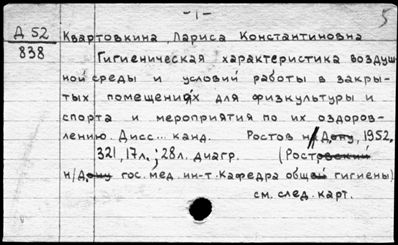 -1-
5
Д 52
838
Квартовкина, Лариса Константиновна
Гигиеническая характеристика воздуш
ной среды и условий работы в закры-
тых помещениях для физкультуры и
спорта и мероприятия по их оздоров-
лению. Дисс... канд. Ростов н/Дону, 1952.
321, 17л.; 28л. диагр. (Ростовский
н/Дону гос. мед. ин-т. Кафедра общей гигиены)
см. след. карт.